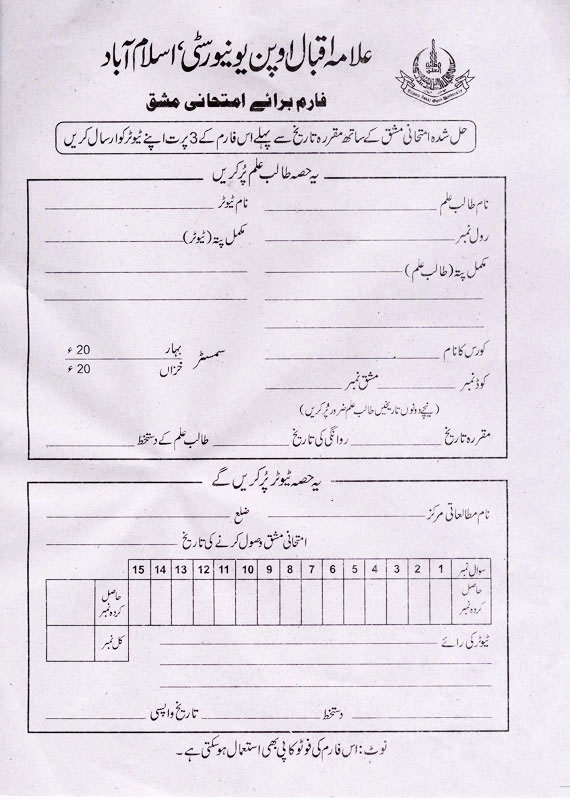 علامہ اقبال اوپن یونیورسٹی، اسلام آباد
فارم برائے امتحانی مشق
حل شدہ امتحانی مشق کے ساتھ مقررہ تاریخ سے پہلے اس فارم کے 3 پرت اپنے ٹیوٹر کو ارسال کریں
یہ حصہ طالب علم پُر کریں
نام طالب علم نام ٹیوٹر
رول نمبر مکمل پتہ (ٹیوٹر)
مکمل پتہ (طالب علم)
کورس کا نام سمسٹر بہار 20 ء
خزاں 20 ء
کوڈ نمبر مشق نمبر
(نیچے دونوں تاریخیں طالب علم ضرور پُر کریں)
مقررہ تاریخ روانگی کی تاریخ طالب علم کے دستخط
یہ حصہ ٹیوٹر پُر کریں گے
نام مطالعاتی مرکز ضلع
امتحانی مشق وصول کرنے کی تاریخ
سوال نمبر 1 2 3 4 5 6 7 8 9 10 11 12 13 14 15
حاصل کردہ نمبر حاصل کردہ نمبر
ٹیوٹر کی رائے کل نمبر
دستخط تاریخ واپسی
نوٹ: اس فارم کی فوٹو کاپی بھی استعمال ہو سکتی ہے۔